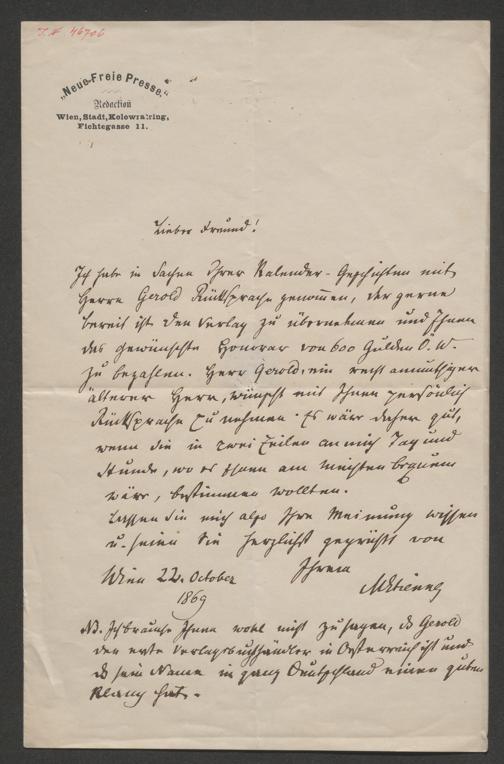 I.N 46706
„Neue Freie Presse.“
Redaction
Wien, Stadt, Kolowratring,
Fichtegasse 11.
Lieber Freund!
Ich habe in Sachen Ihrer Kalender-Geschichten mit
Herrn Gerold Rücksprache genommen, der gerne
bereit ist den Verlag zu übernehmen und Ihnen
das gewünschte Honorar von 600 Gulden Ö.W.
zu bezahlen. Herr Gerold, ein recht anmuthiger
älterer Herr, wünscht mit Ihnen persönlich
Rücksprache zu nehmen. Es wäre daher gut,
wenn Sie in zwei Zeilen an mich Tag und
Stunde, wo es Ihnen am meisten bequem
wäre, bestimmen wollten.
Lassen Sie mich also Ihre Meinung wissen
u. seien Sie herzlichst gegrüßt von
Wien 22. October
Ihrem
1869
MEtienne
NB. Ich brauche Ihnen wohl nicht zu sagen, daß Gerold
der erste Verlagsbuchhändler in Oesterreich ist und
daß sein Name in ganz Deutschland einen guten
Klang hat.